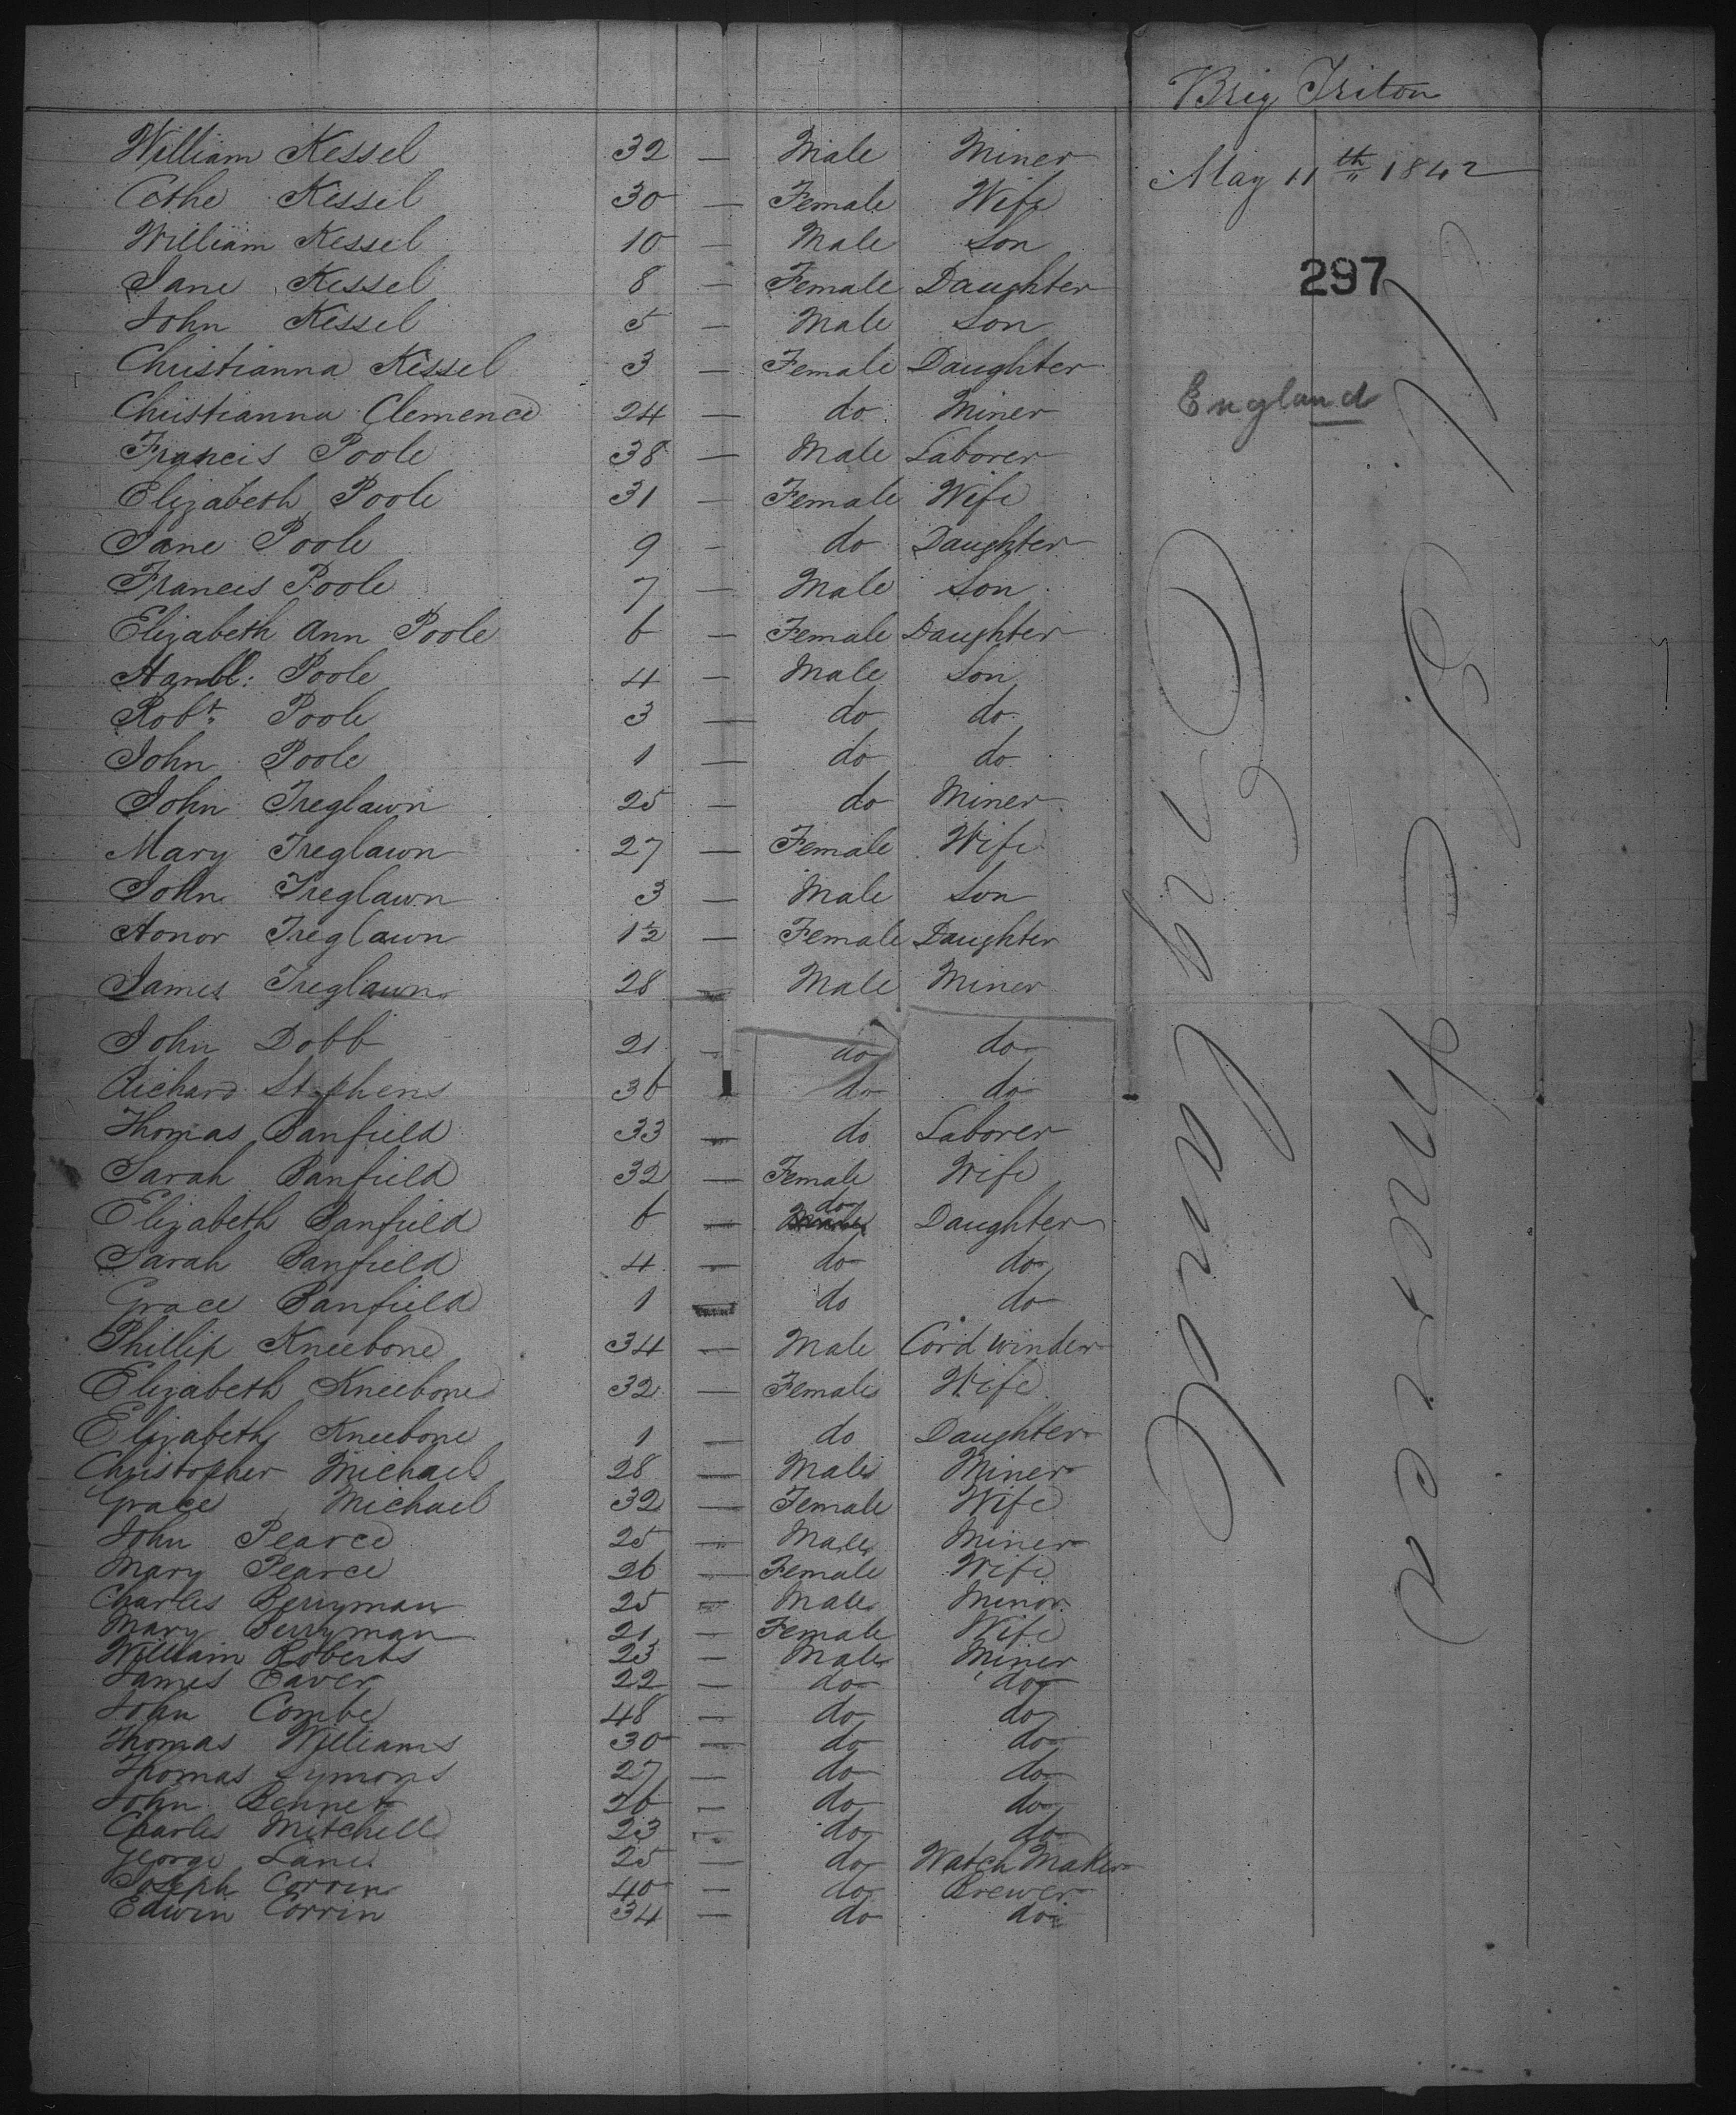 Brig Triton
William Kessel 32 — Male Miner
May 11th 1842
Cothe Kessel 30 — Female Wife
William Kessel 10 — Male Son
297
Jane Kessel 8 — Female Daughter
John Kessel 5 — Male Son
Christianna Kessel 3 — Female Daughter
England
Christianna Clemence 24 — do Miner
Francis Poole 38 — Male Laborer
Elizabeth Poole 31 — Female Wife
Jane Poole 9 — do Daughter
Francis Poole 7 — Male Son
Elizabeth Ann Poole 6 — Female Daughter
Hambl: Poole 4 — Male Son
Robt. Poole 3 — do do
John Poole 1 — do do
John Treglawn 25 — do Miner
Mary Treglawn 27 — Female Wife
John Treglawn 3 — Male Son
Honor Treglawn 1½ — Female Daughter
James Treglawn 28 — Male Miner
John Dobb 21 — do do
Richard Stephens 36 do do
Thomas Banfield 33 — do Laborer
Sarah Banfield 32 — Female Wife
Elizabeth Banfield 6 — do Daughter
Sarah Banfield 4 — do do
Grace Banfield 1 — do do
Phillip Kneebone 34 — Male Cord winder
Elizabeth Kneebone 32 — Female Wife
Elizabeth Kneebone 1 — do Daughter
Christopher Michael 28 — Male Miner
Grace Michael 32 — Female Wife
John Pearce 25 — Male Miner
Mary Pearce 26 — Female Wife
Charles Berryman 25 — Male Minor
Mary Berryman 21 — Female Wife
William Roberts 23 — Male Miner
James Eaver 22 — do do
John Combe 48 — do do
Thomas Williams 30 — do do
Thomas Symons 27 — do do
John Bennet 26 — do do
Charles Mitchell 23 — do do
George Lane 25 — do Watch Maker
Joseph Corrin 40 — do Brewer
Edwin Corrin 34 — do do